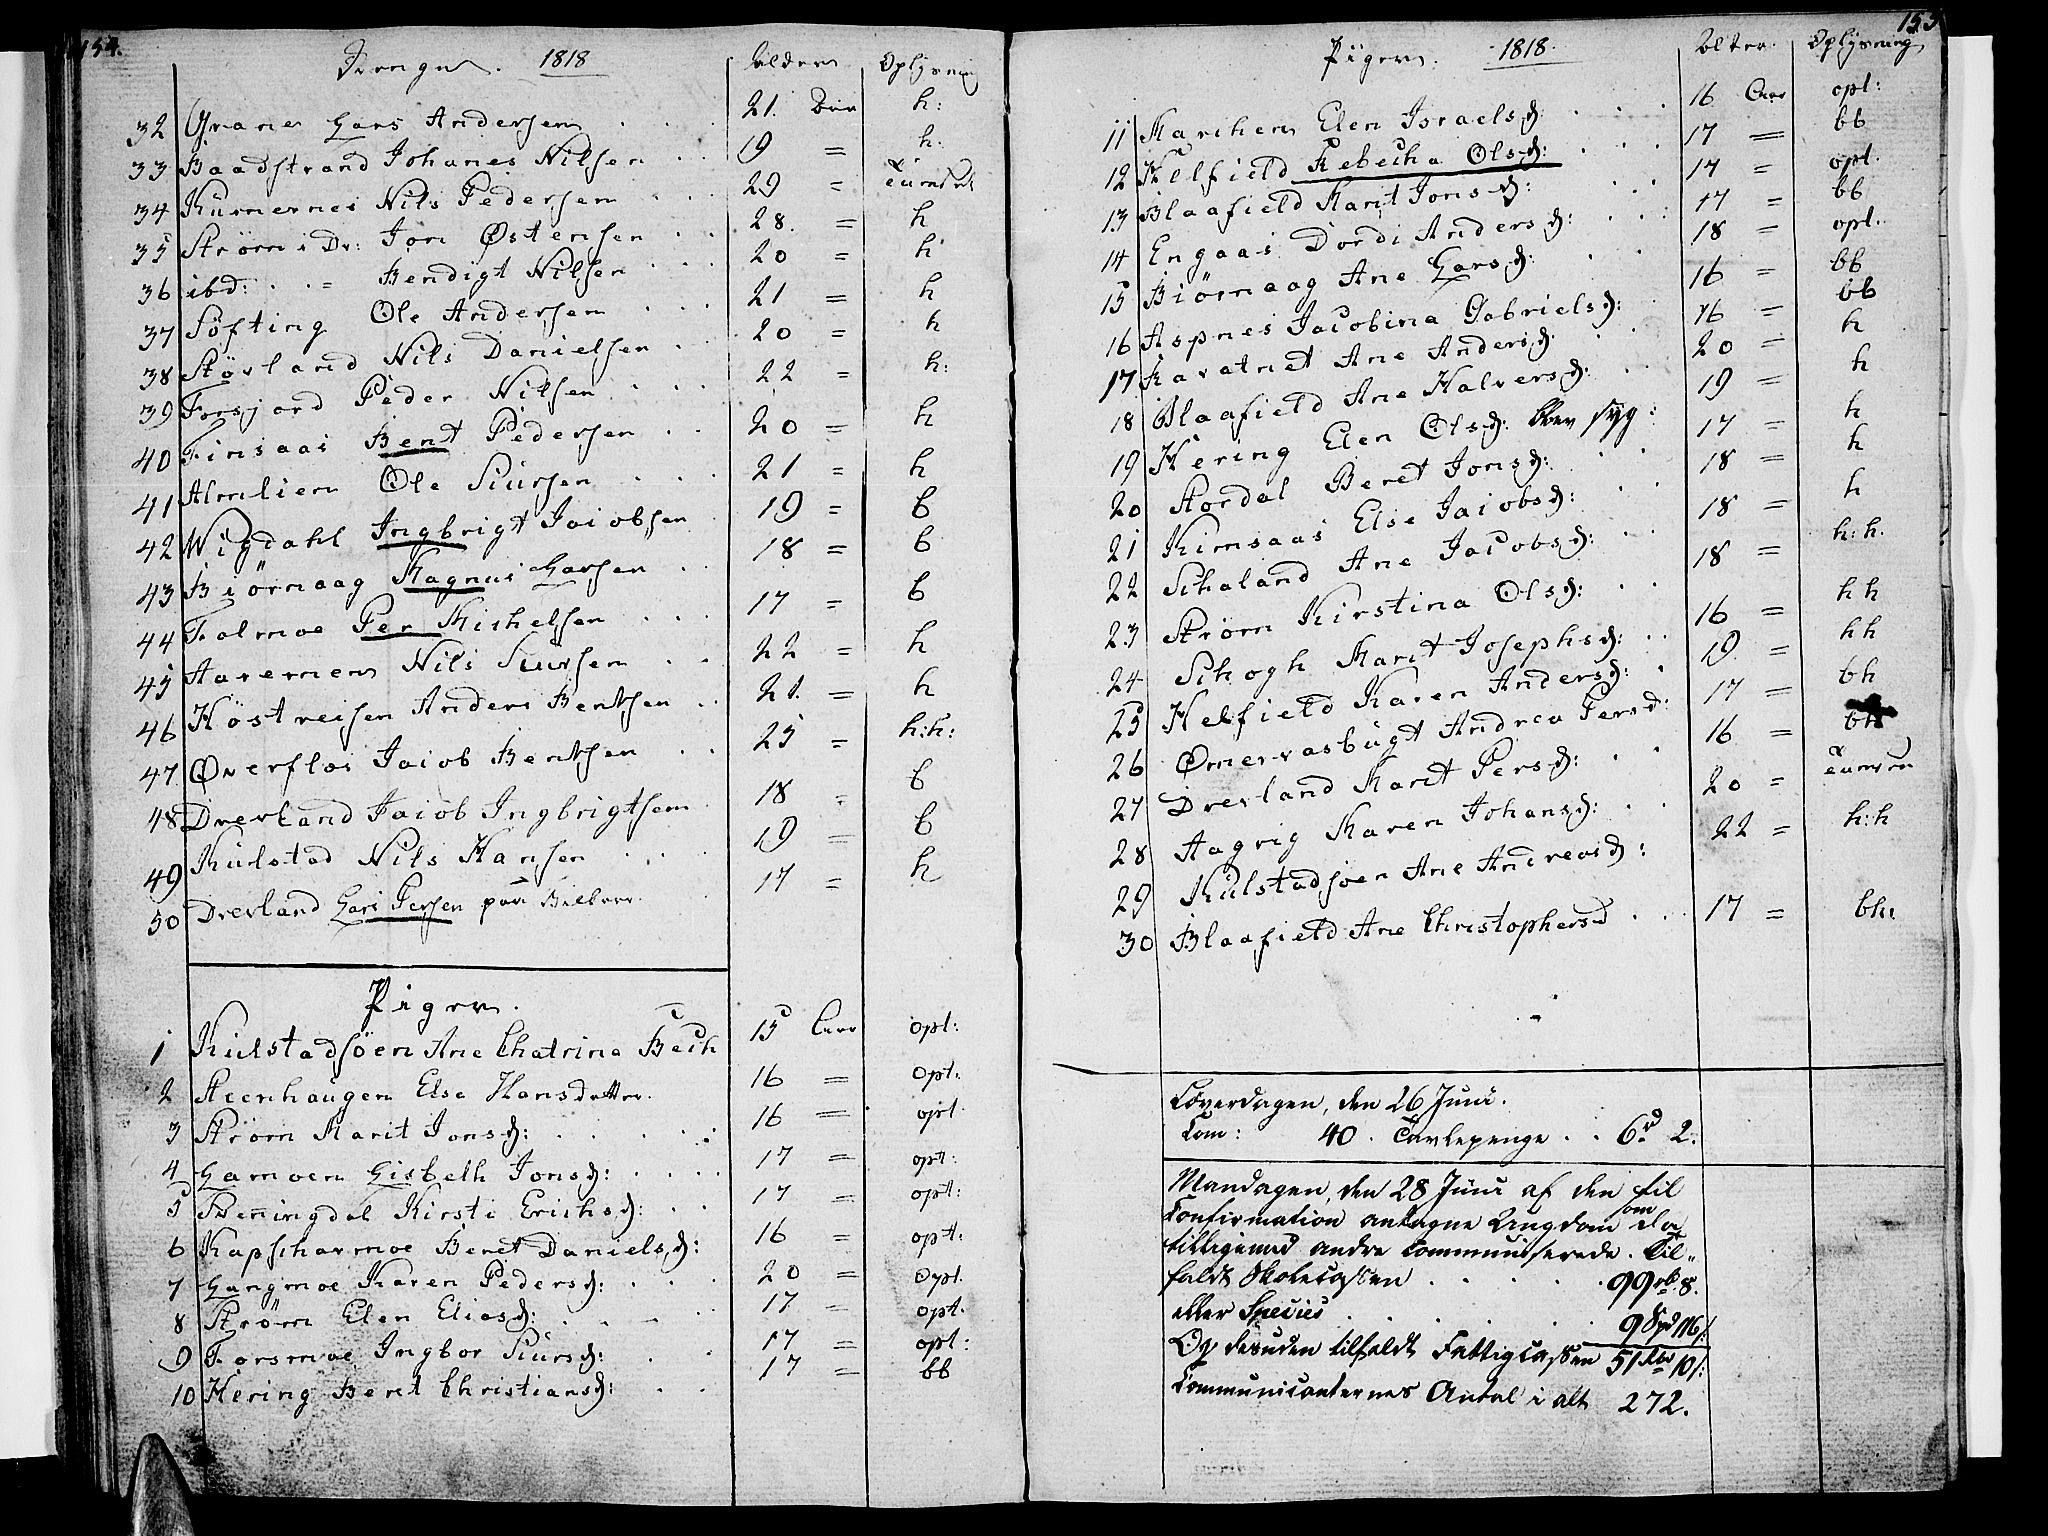 154.
Drenge. 1818 Alder Oplysning
32 Grane Lars Andersen 21. Aar h:
33 Baadstrand Johanes Nilsen 19 = h.
34 Kurnernes Nils Pedersen 29 =
35 Strøm i Dr: Jon Østensen 28. = h
36 ibd: Bendigt Nilsen 20 = h
37 Søfting Ole Andersen 21 = h
38 Støvland Nils Danielsen 20 = h
39 Forsjord Peder Nilsen 22 = h:
40 Finsaas Bent Pedersen 20 = h
41 Almlien Ole Siursen 21 = h
42 Wigdahl Ingbrigt Jacobsen 19 = b
43 Biørnaag Magnus Larsen 18 = b
44 Folmoe Per Michelsen 17 = b
45 Aavernen Nils Siursen 22 = h
46 Høstreisen Anders Bentsen 21. = h
47 Øverflos Jacob Bentsen 25 = h:h:
48 Drevland Jacob Ingbrigtsen 18 = b
49 Kulstad Nils Hansen 19 = b
50 Drevland Lars Persen paa 17 = h
Piger.
1 Kulstadsøen Ane Chatrina Bech 15 Aar opl:
2 Steenhaugen Else Hansdatter. 16 = opt.
3 Strøm Marit Jonsd: 16 = opt.
4 Lamoen Lisbeth Jonsd: 17 = opt:
5 Svenningdal Kirsti Erichsd: 17 = opt:
6 Kapskarmoe Beret Danielsd: 16 = opt:
7 Langmoe Karen Pedersd: 20 = opt.
8 Strøm Elen Eliasd: 17 = opt.
9 Forsmoe Ingbor Siursd: 17 = opt:
10 Hering Beret Christiansd: 17 = bb
155
Piger. 1818. Alder. Oplysning
11 Marihem Elen Israelsd: 16 Aar opt:
12 Helfield Rebecha Olsd: 17 = bb
13 Blaafield Marit Jonsd: 17 = opt.
14 Engaas Dordi Andersd: 17 = bb
15 Biørnaag Ane Larsd: 18 = opt.
16 Aspnes Jacobina Gabrielsd: 16 = bb
17. Ravatnet Ane Andersd. 16 = bb
18 Blaafield Ane Halversd: 20 = h
19 Hering Elen Olsd: blev syg: 19 = h
20 Stordal Beret Jonsd: 17 = h
21 Kimsaas Else Jacobsd: 18 = h
22 Schaland Ane Jacobsd: 18 = h
23 Strøm Kirstina Olsd: 18 = h:h.
24 Schogh Marit Josephsd: 16 = hh
25 Helfield Karen Andersd: 19 = hh
26 Ømervasbugt Andrea Persd: 17 = bh
27 Drevland Marit Persd: 16 = bh
28 Aagrig Maren Johansd: 20 =
29 Kulstadsøen Ane Andreasd: 22 = h:h
30 Blaafield Ane Christophersd 17 = bh.
Løverdagen, den 26 Juni.
Com: 40. Tavlepenge . . 6d 2.
Mandagen, den 28 Juni af den til
Confirmation antagne Ungdom som da
tilligemed andre communiserede. Til-
faldt Skolecassen 99 rb 8.
eller Species 9 Spd 116/:
Og desuden tilfaldt Fattigcassen 51 Rbd 10/:
Communicanternes Antal i alt 272.